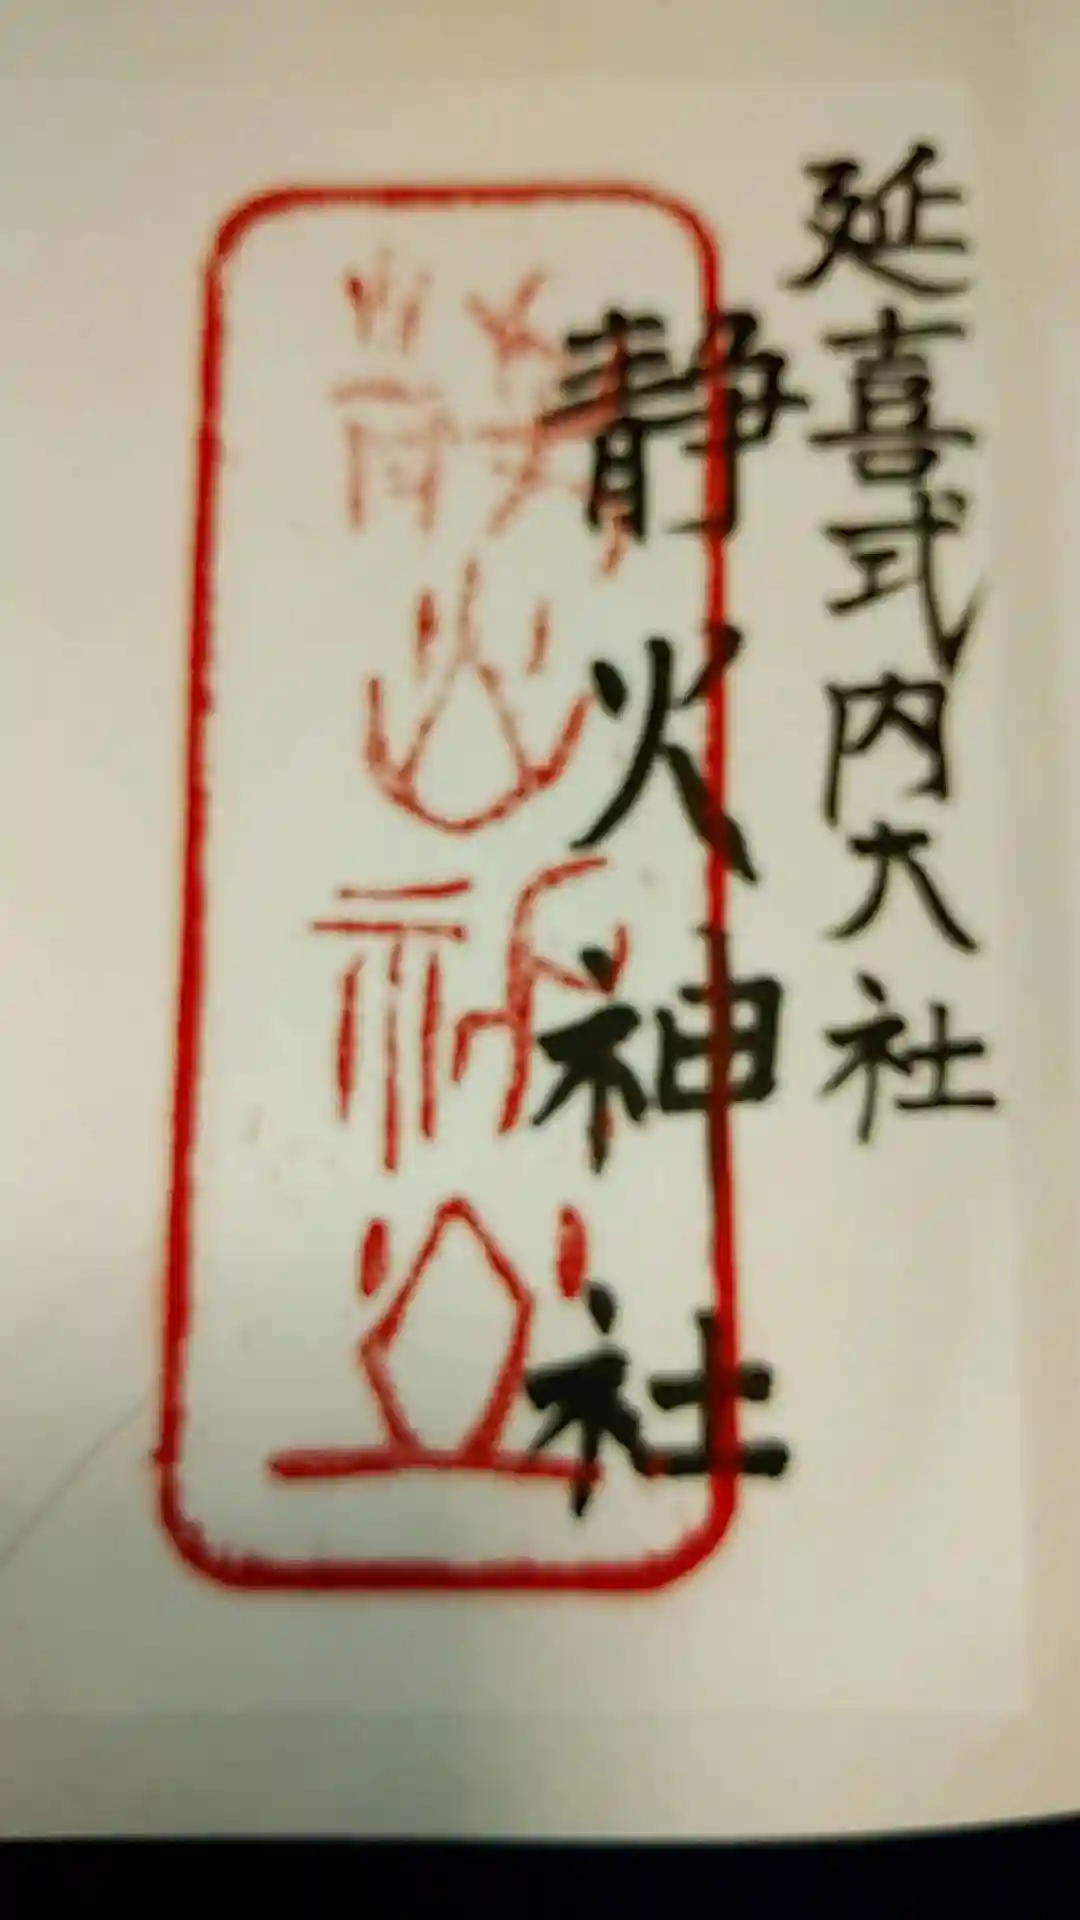 延喜式内大社
静火神社
静火神社